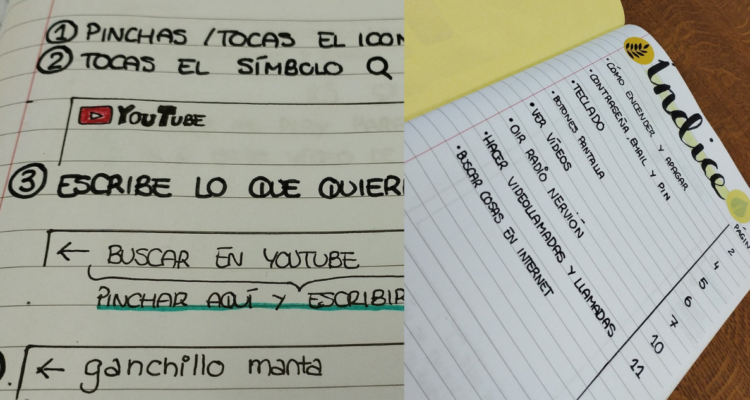 ① PINCHAS / TOCAS EL ICON
② TOCAS EL SÍMBOLO
YOUTUBE
③ ESCRIBE LO QUE QUIER
← BUSCAR EN YOUTUBE
PINCHAR AQUÍ Y ESCRIBIR
← ganchillo manta
índice
PÁGIN
• CÓMO ENCENDER Y APAGAR
• CONTRASEÑA, EMAIL Y PIN
• TECLADO
• BOTONES PANTALLA
• VER VÍDEOS
• OIR RADIO NERVIÓN
• HACER VIDEOLLAMADAS Y LLAMADAS
• BUSCAR COSAS EN INTERNET
2
4
5
6
7
10
11